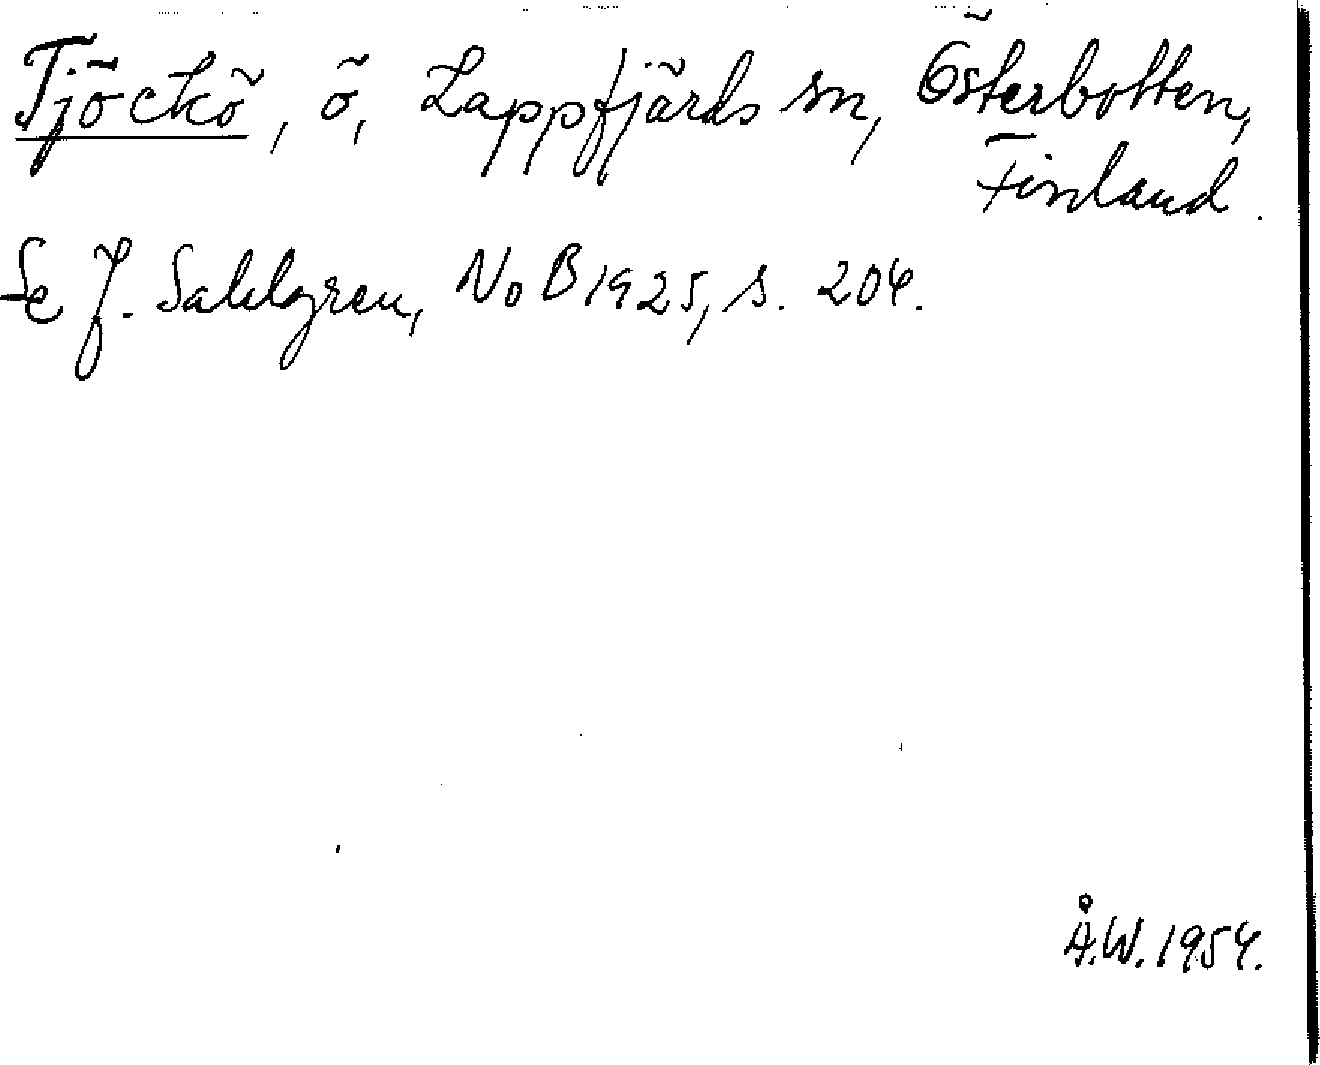 Tjöckö, ö, Lappfjärds sn, Österbotten,
Finland.
Se J. Sahlgren, NoB 1925, s. 204.
Å.W. 1954.